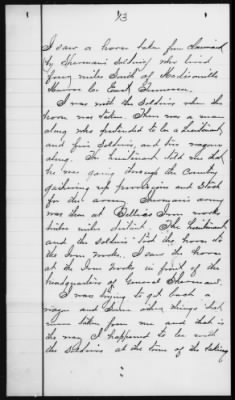 13
I saw a horse taken from Claimant
by Shermans Soldiers, who lived
four miles South of Madisonville
Monroe Co. East Tennessee.
I was with the Soldiers when the
horse was taken. There was a man
along who pretended to be a Lieutenant
and five Soldiers, and two wagons
along. The Lieutenant told me that
he was going through the Country
gathering up provisions and Stock
for the army Shermans army
was then at Tellico Iron works
miles distant. The Lieutenant
and the Soldiers took the horse to
the Iron Works. I saw the horse
at the Iron Works in front of the
headquarters of General Sherman.
I was trying to get back a
wagon and some other things that
were taken from me and that is
the way I happened to be with
the Soldiers at the time of the taking